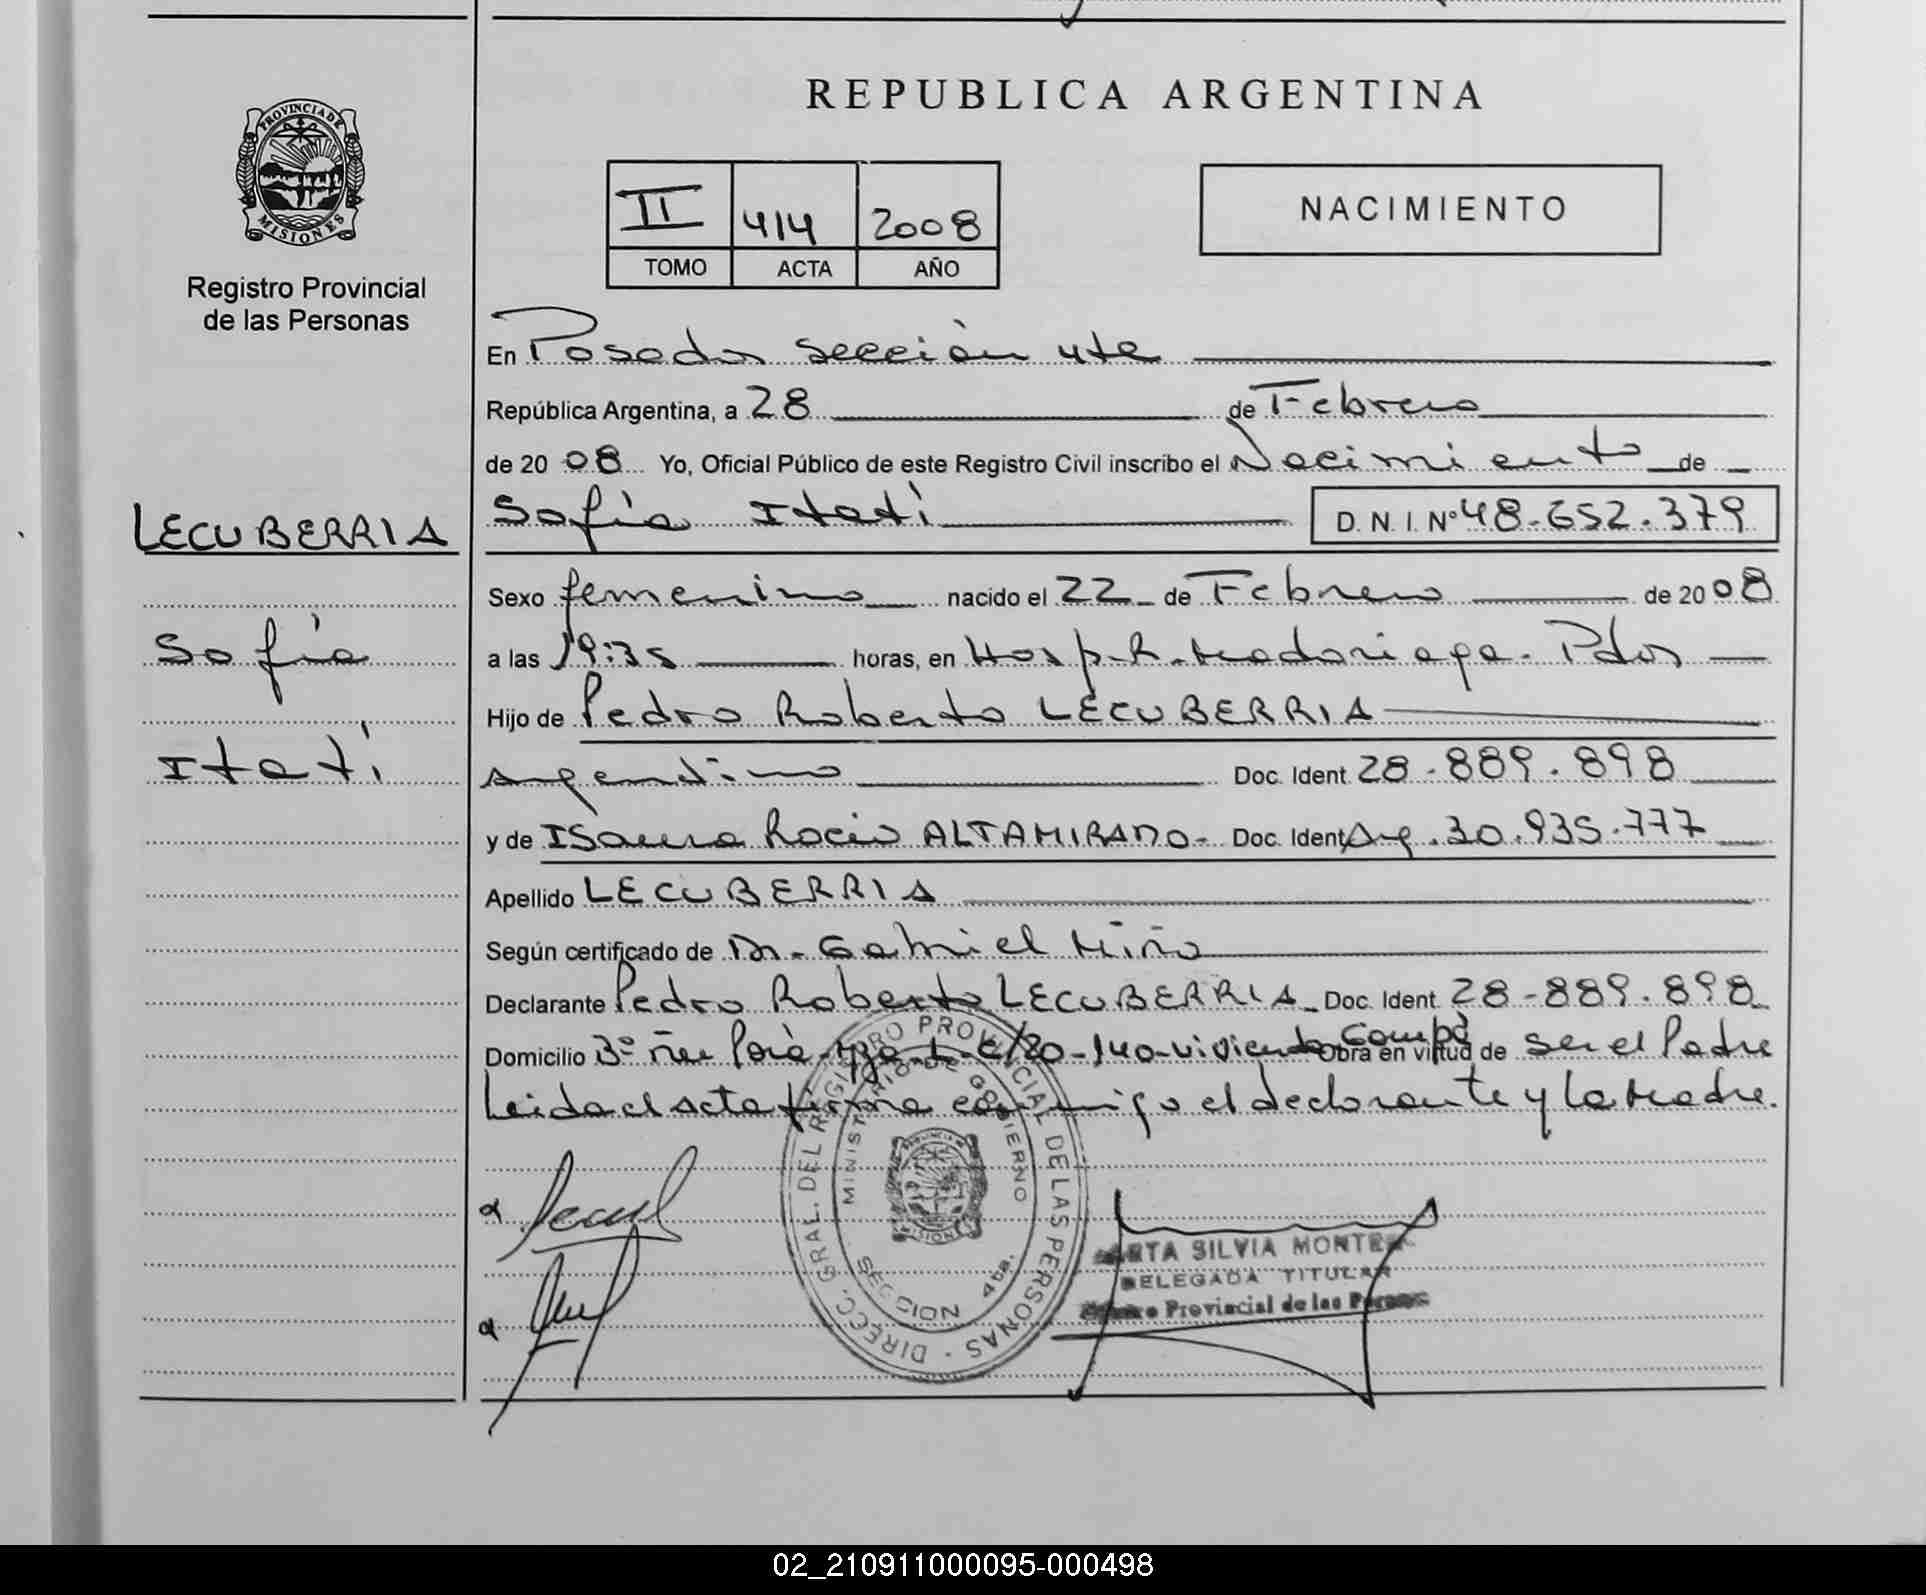 REPUBLICA ARGENTINA
PROVINCIA DE MISIONES
Registro Provincial
de las Personas
II 414 2008
TOMO ACTA AÑO
NACIMIENTO
En Posadas Sección 4ta
República Argentina, a 28 de Febrero
de 20 08 Yo, Oficial Público de este Registro Civil inscribo el Nacimiento de
LECUBERRIA
Sofía
Itatí
Sofía Itatí D.N.I. Nº 48.652.379
Sexo femenino nacido el 22 de Febrero de 20 08
a las 19:35 horas, en Hosp. R. Madariaga. Pdas
Hijo de Pedro Roberto LECUBERRIA
Argentino Doc. Ident. 28.889.898
y de Isaura Rocio ALTAMIRANO - Doc. Ident. Arg. 30.935.777
Apellido LECUBERRIA
Según certificado de Dr. Gabriel Miño
Declarante Pedro Roberto LECUBERRIA Doc. Ident. 28.889.898
Domicilio 140 vivienda Obra en virtud de ser el Padre
Leida el acta firma conmigo el declarante y la Madre.
DIRECC. GRAL. DEL REGISTRO PROVINCIAL DE LAS PERSONAS
MINISTERIO DE GOBIERNO
SECCION 4ta.
SILVIA
DELEGADA TITULAR
Provincial de las
02_210911000095-000498